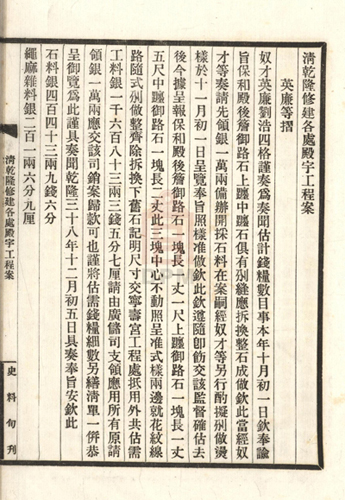 清乾隆修建各處殿宇工程案
英廉等摺
奴才英廉劉浩四格謹奏爲奏聞估計錢糧數目事本年十月初一日欽奉諭
旨保和殿後簷御路石上躧中躧石俱有別縫應拆換整石成做欽此當經奴
才等奏請先領銀一萬兩備辦開採石料在案嗣經奴才等另行酌擬別做燙
樣於十一月初一日呈覽奉旨照樣准做欽此欽遵隨即飭交該監督確估去
後今據呈報保和殿後簷御路石一塊長一丈一尺上躧御路石一塊長一丈
五尺中躧御路石一塊長一丈此三塊中心不動照呈准式樣兩邊就花紋線
路隨式別做整齊除拆換下舊石記明尺寸交寧壽宮工程處抵用外共估需
工料銀一千六百八十三兩三錢五分七厘請由廣儲司支領應用所有原請
領銀一萬兩應交該司銷案歸款可也謹將估需錢糧細數另繕清單一併恭
呈御覽爲此謹具奏聞乾隆三十八年十二月初五日具奏奉旨安欽此
石料銀四百四十三兩九錢六分
繩麻雜料銀二百一兩六分九厘
清乾隆修建各處殿宇工程案
史料旬刊